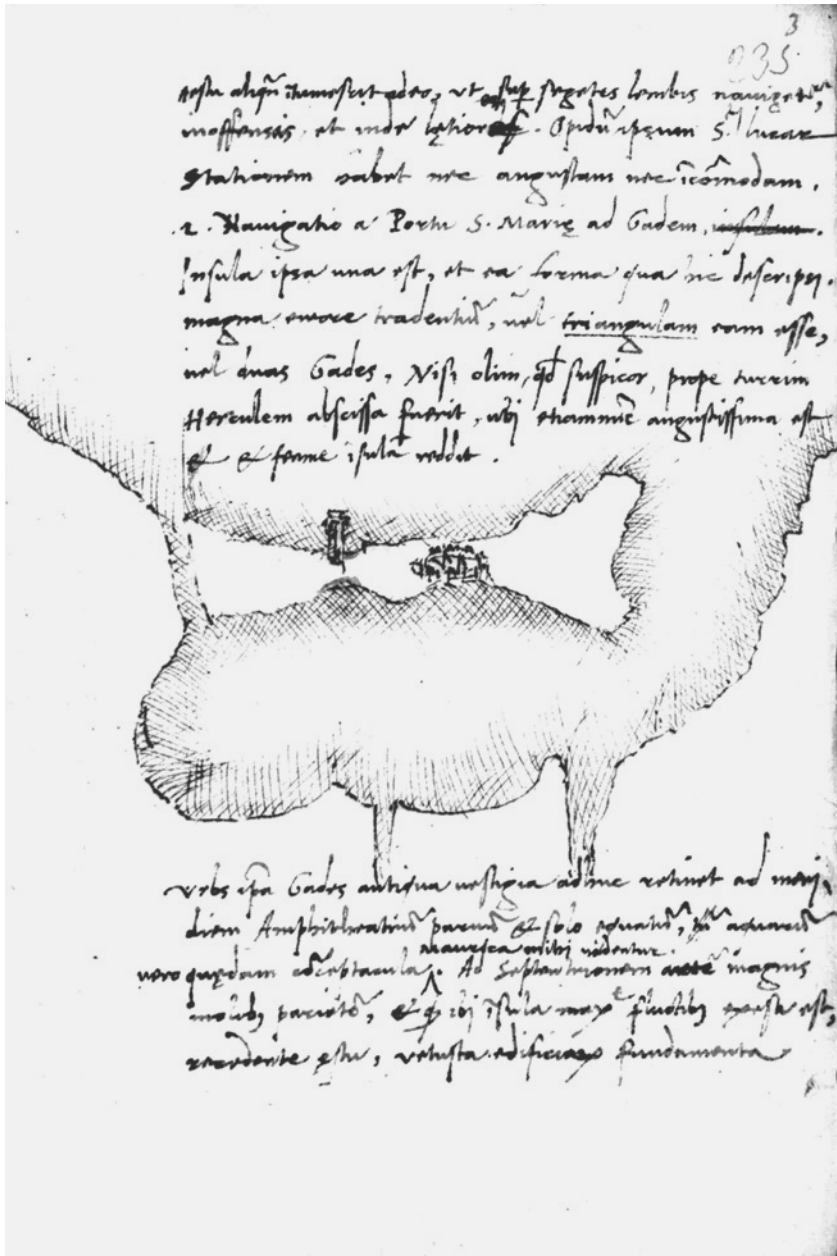 3
235
aestu aliqñ itumescit adeo, ut super segetes lembis nauigetur,
inoffensis, et inde lętior. Opidũ ipsum S. lucar
Stationem habet nec angustam nec ĩcõmodam.
2. Nauigatio a Portu S. Marię ad Gadem, insulam.
Insula ipsa una est, et ea forma qua hic descripsi.
magna errore tradentiũ, uel triangulam eam esse,
uel duas Gades, Nisi olim, qd suspicor, prope turrim
Herculem abscissa fuerit, ubi etiamnũc angustissima est
& & ferme ĩsulã reddit.
Vrbs ipa Gades antiqua uestigia adhuc retinet ad meri
diem Amphitheatrũ paruũ & solo equatũ, aquarũ
Maurica mihi uidentur.
uero quędam cõceptacula. Ad Septentrionem magnis
molibus parietũ, & ibi ĩsula maxᵉ fluctibus exesa est,
recedente ęstu, uetusta edificia fundamenta